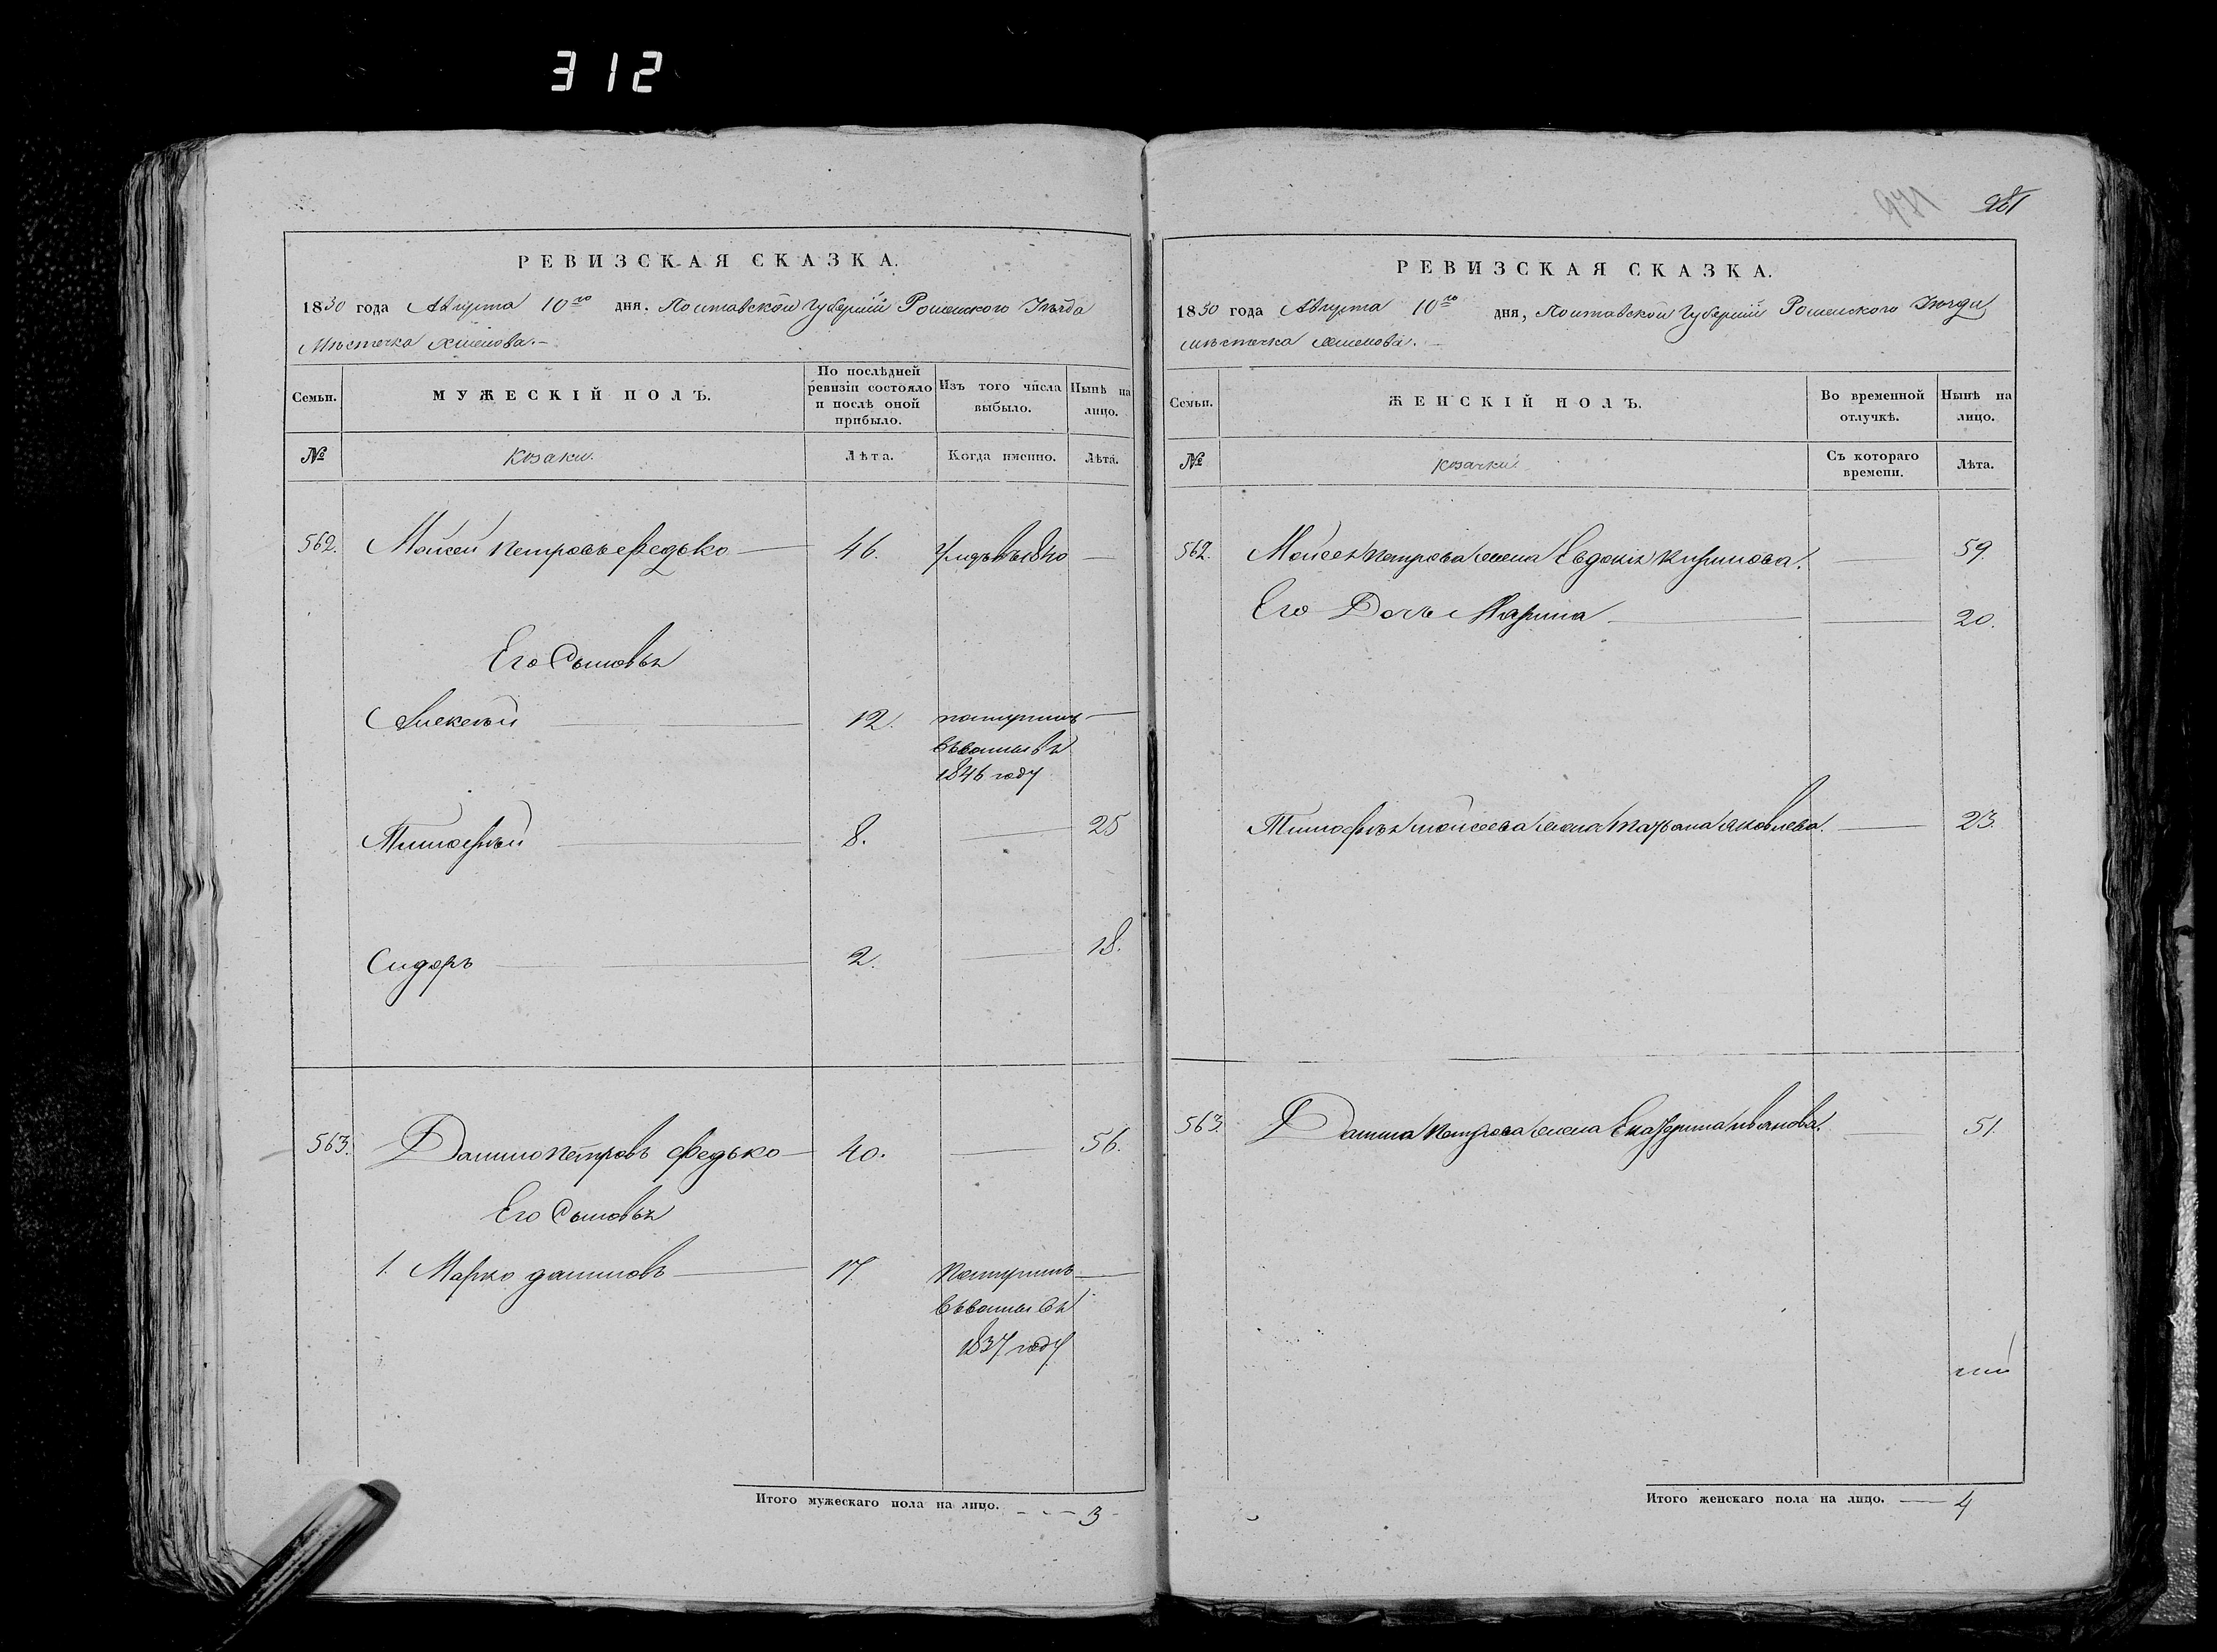 312
971 981
РЕВИЗСКАЯ СКАЗКА.
1850 года Августа 10го дня. Полтавской Губерніи Роменского Уѣзда
Мѣстечка
Семьи.
МУЖЕСКІЙ ПОЛЪ.
По послѣдней ревизіи состояло и послѣ оной прибыло.
Изъ того числа выбыло.
Нынѣ на лицо.
№
Козаки.
Лѣта.
Когда именно.
Лѣта.
562. Мойсей Петровъ Федько — 46. —
Его Сыновья
Алексѣй — 12. поступилъ —
1846 году
Тимофѣй — 8. — 25
Сидоръ — 2. — 18.
563. Данило Петровъ Федько — 40. — 56.
Его Сыновья
1. Марко Даниловъ — 17. Поступилъ —
1837 году
Итого мужескаго пола на лицо. - - - 3
РЕВИЗСКАЯ СКАЗКА.
1850 года Августа 10го дня, Полтавской Губерніи Роменского Уѣзда
Мѣстечка
Семьи.
ЖЕНСКІЙ ПОЛЪ.
Во временной отлучкѣ.
Нынѣ на лицо.
№
Козачки
Съ котораго времени.
Лѣта.
562. Мойсея Петрова жена Евдокія Кирилова. — 59.
Его Дочь Марина — — 20.
Тимофѣя Мойсеева жена Татьяна Яковлева. — 23.
563. Данила Петрова жена Екатерина Иванова. — 51.
Итого женскаго пола на лицо. — 4